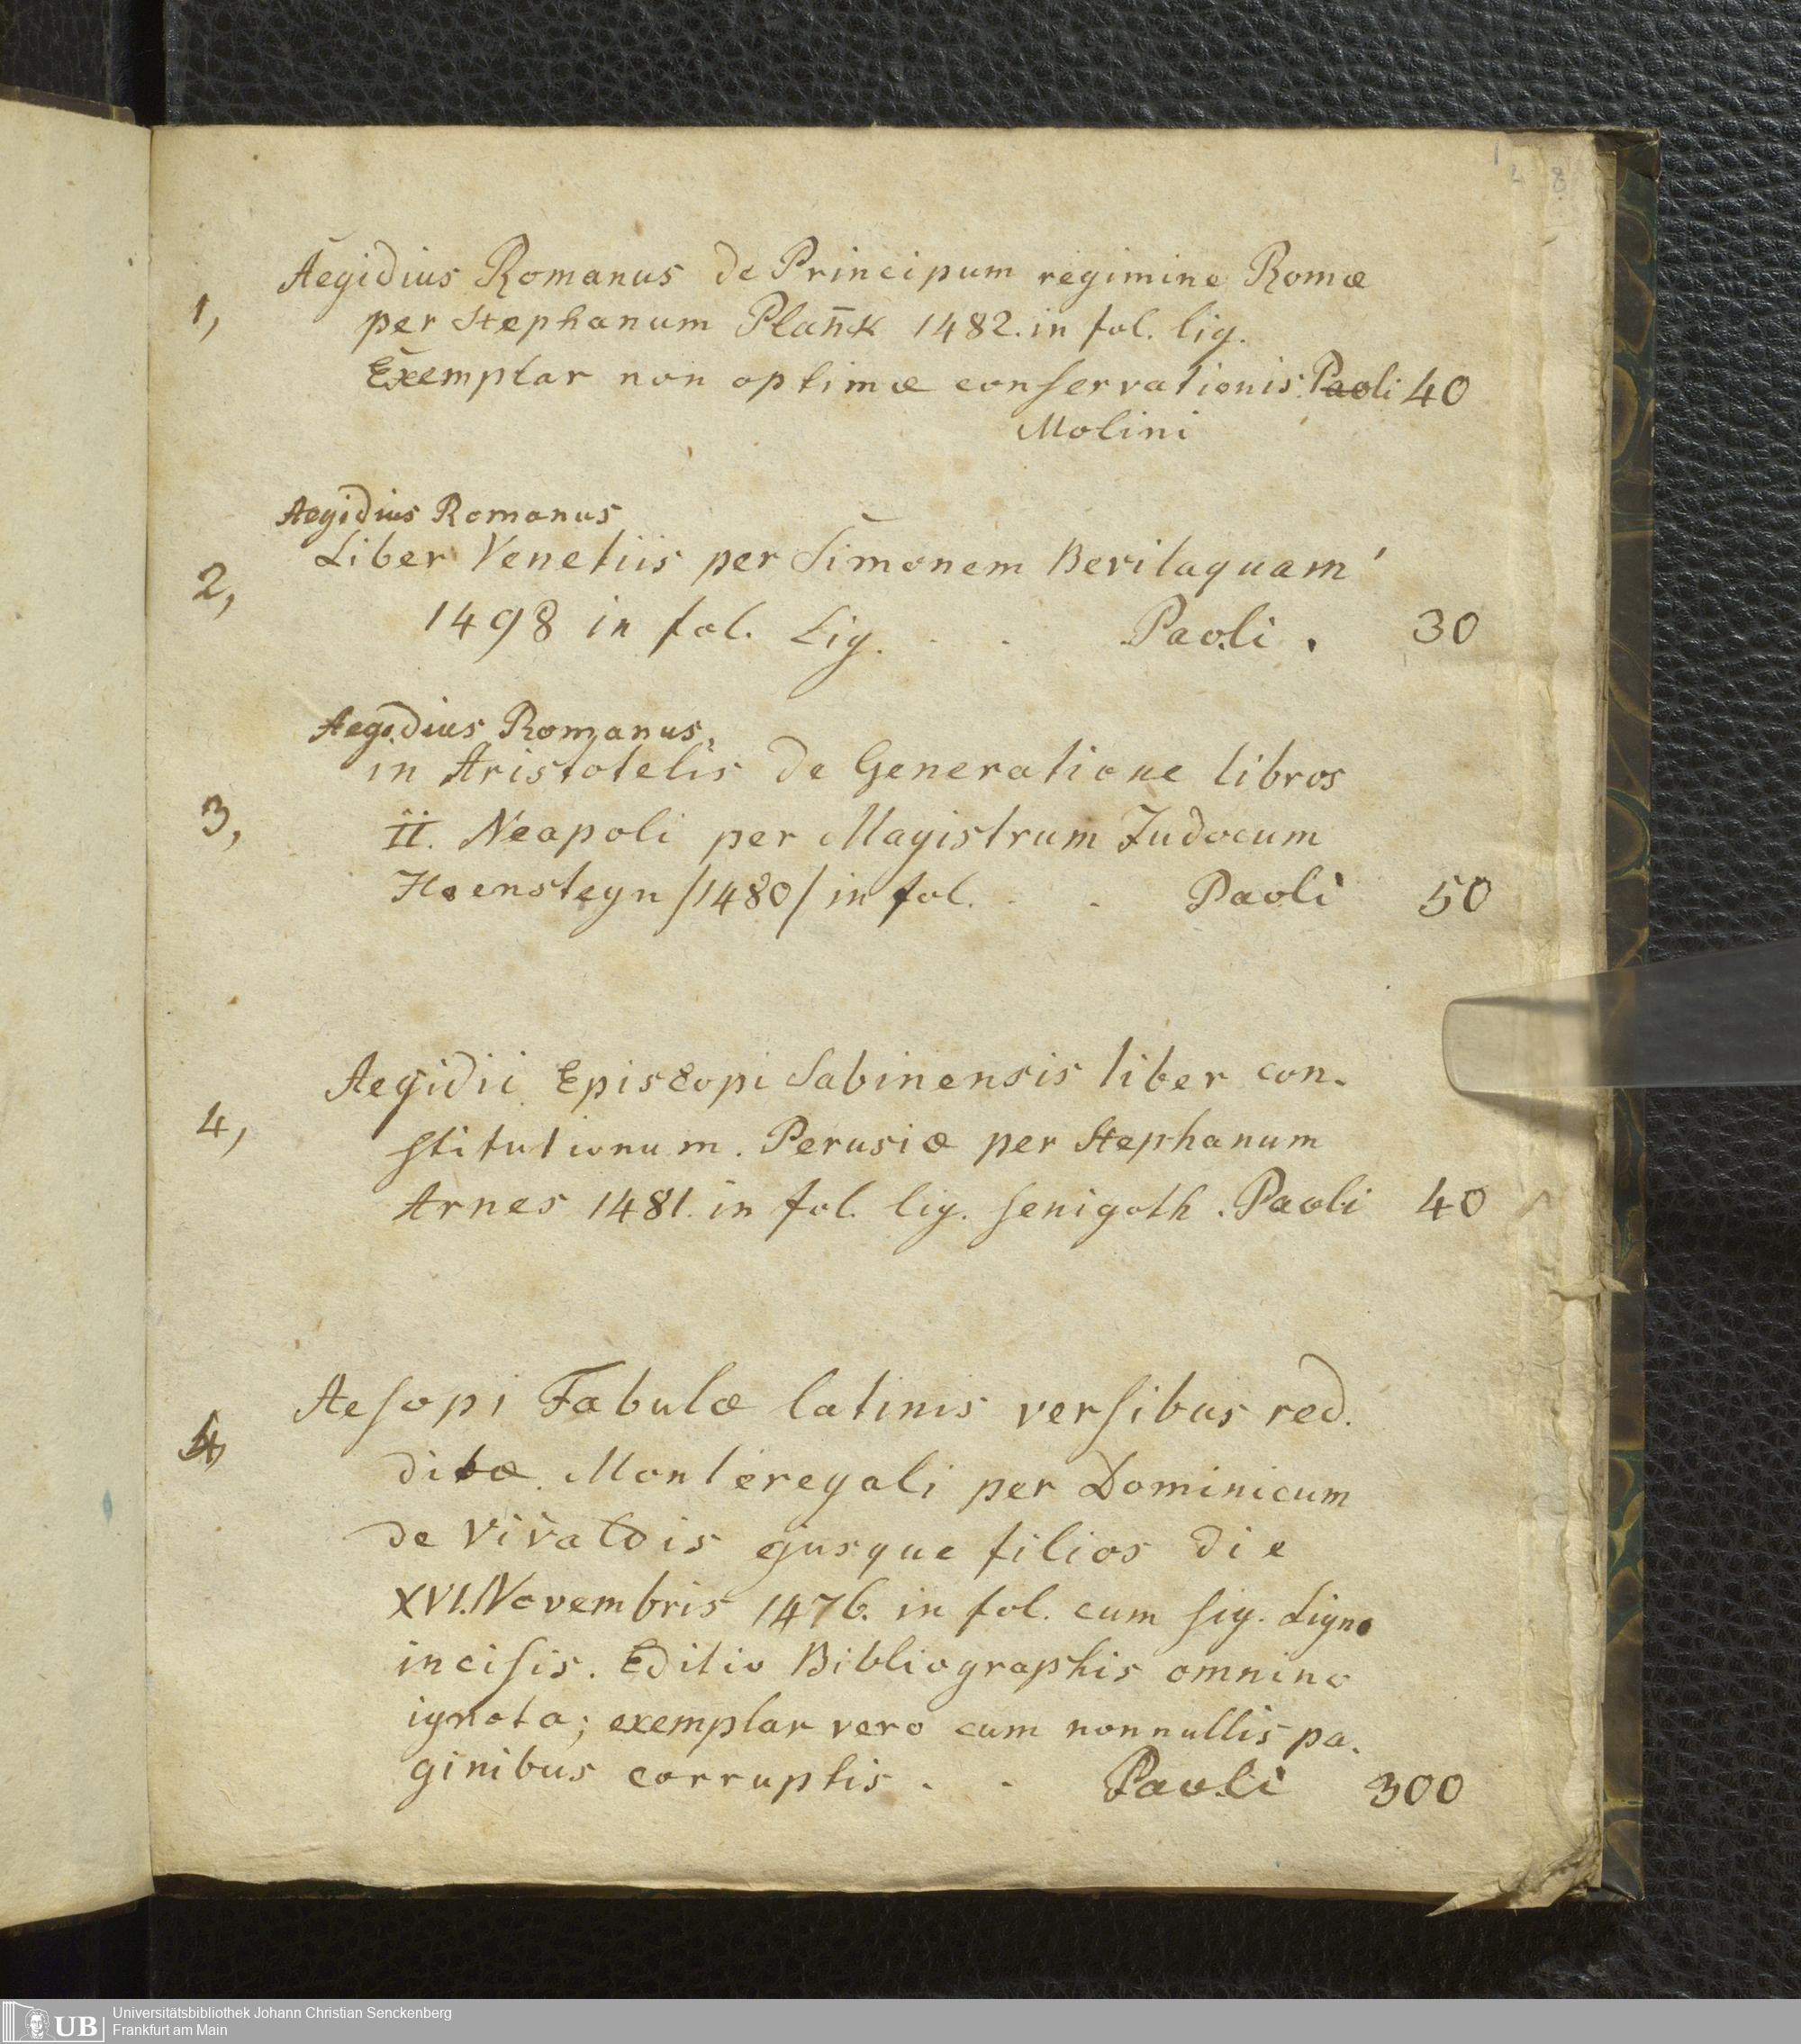 Aegidius Romanus de Principum regimine Romæ
1, per Stephanum Plan̄k 1482. in fol. lig.
Exemplar non optimæ conservationis. Paoli 40
Molini
Aegidius Romanus
Liber Venetiis per Simonem Bevilaquam
2, 1498 in fol. Lig. . . Paoli . 30
Aegidius Romanus,
in Aristotelis de Generatione libros
3, II. Neapoli per Magistrum Judocum
Hoensteyn /1480/ in fol. . . Paoli 50
Aegidii Episcopi Sabinensis liber con-
4, stitutionum. Perusiæ per Stephanum
Arnes 1481. in fol. lig. semigoth. Paoli 40
Aesopi Fabulæ latinis versibus red-
ditæ. Monteregali per Dominicum
de Vivaldis ejusque filios die
XVI. Novembris 1476. in fol. cum fig. Ligno
incisis. Editio Bibliographis omnino
ignota; exemplar vero cum nonnullis pa-
ginibus corruptis . . Paoli 300
UB Universitätsbibliothek Johann Christian Senckenberg
Frankfurt am Main